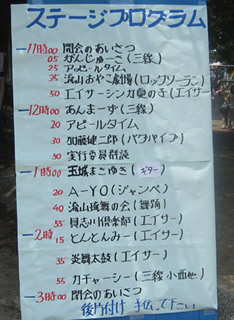 ステージプログラム
11時00 開会のあいさつ
05 がんじゅーさ(三線)
25 アピールタイム
25 流山おやこ劇場(ロックソーラン)
50 エイサーシンカ奥の手(エイサー)
12時00 あんまーず(三線)
20 アピールタイム
30 加藤健二郎(バグパイプ)
30 実行委員
1時00 玉城まさゆき(ギター)
20 A-YO(ジャンベ)
40 流山琉舞の会(舞踊)
55 具志川倶楽部(エイサー)
2時15 とんとんみー(エイサー)
35 炎舞太鼓(エイサー)
55 カチャーシー(三線
3時00 閉会のあいさつ
後片付け 手伝って下さい